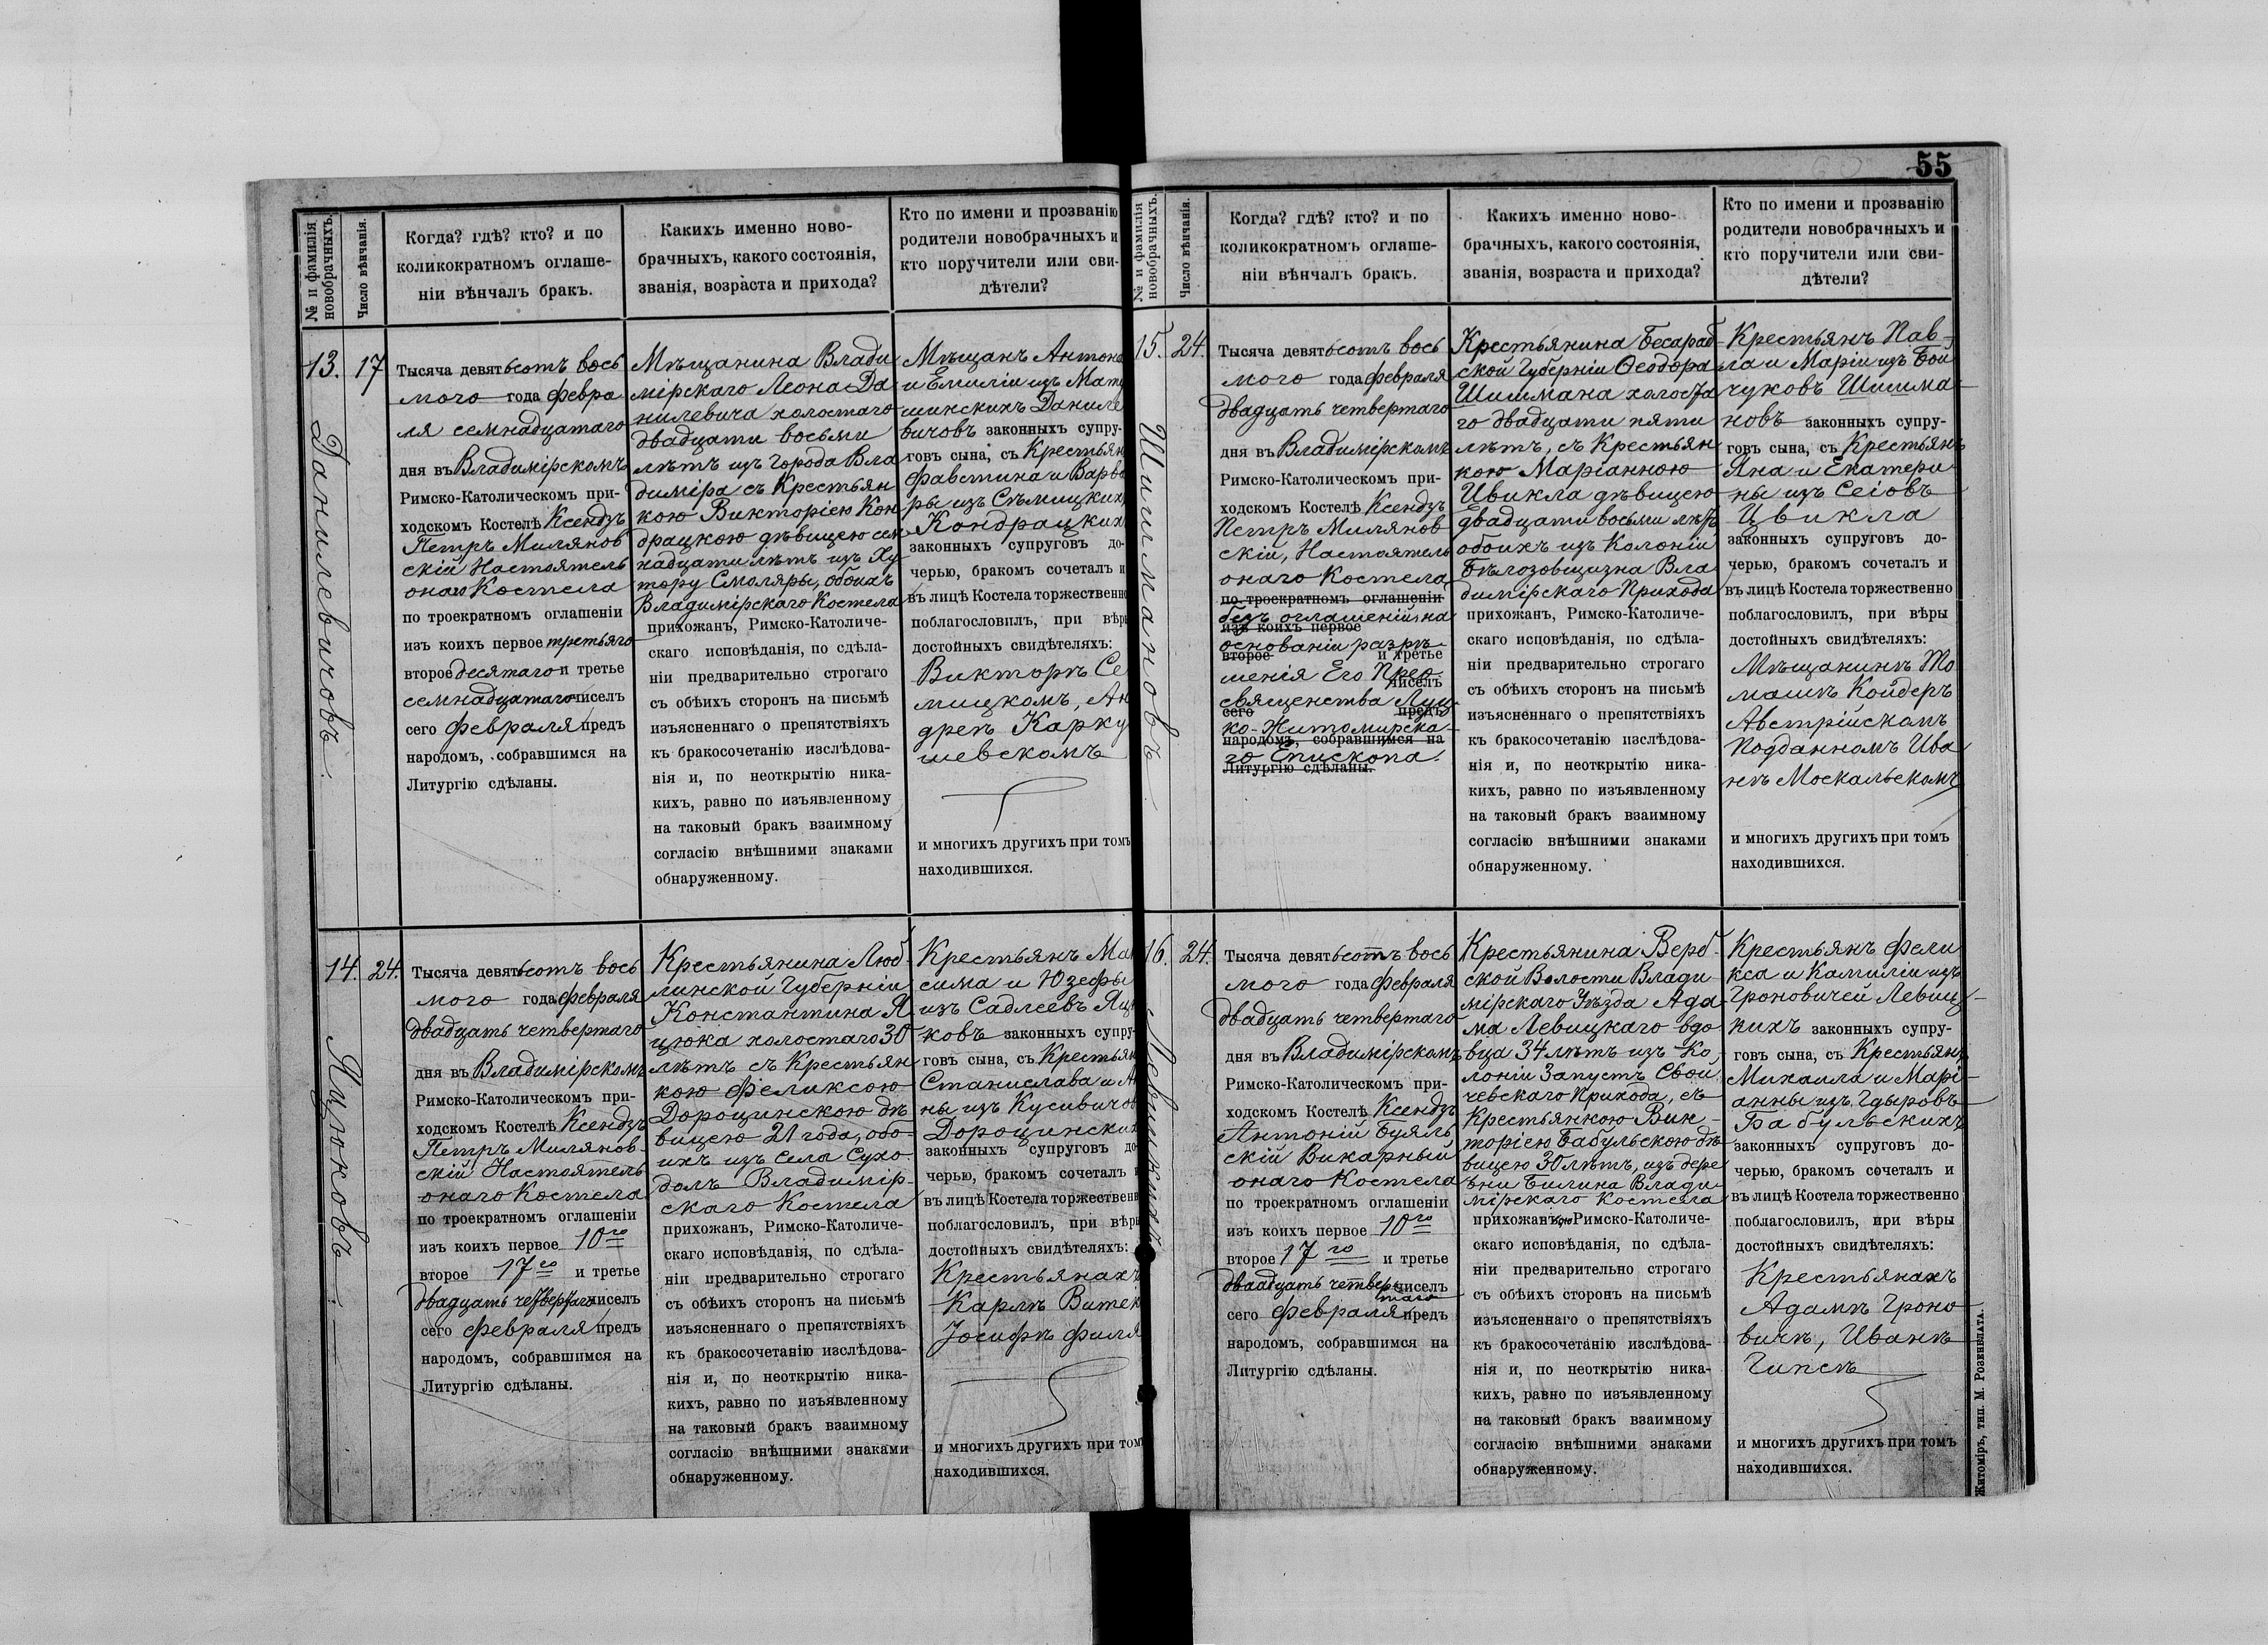 55
№ и фамилія
новобрачныхъ.
Число вѣнчанія.
Когда? гдѣ? кто? и по
коликократномъ оглаше-
ніи вѣнчалъ бракъ.
Какихъ именно ново-
брачныхъ, какого состоянія,
званія, возраста и прихода?
Кто по имени и прозванію
родители новобрачныхъ и
кто поручители или сви-
дѣтели?
13.
Данилевичовъ.
17
Тысяча девятьсотъ вось
мого года февра
ля семнадцатаго
дня въ Владимірскомъ
Римско-Католическомъ при-
ходскомъ Костелѣ Ксендзъ
Петръ Милянов
скій Настоятель
онаго Костела
по троекратномъ оглашеніи
изъ коихъ первое третьяго
второе десятаго и третье
семнадцатаго чиселъ
сего февраля предъ
народомъ, собравшимся на
Литургію сдѣланы.
Мѣщанина Влади
мірскаго Леона Да
нилевича холостаго
двадцати восьми
лѣтъ изъ города Вла
диміра съ Крестьян
кою Викторіею Кон
драцкою дѣвицею сем
надцати лѣтъ изъ Ху
тору Смоляры, обоихъ
Владимірскаго Костела
прихожанъ, Римско-Католиче-
скаго исповѣданія, по сдѣла-
ніи предварительно строгаго
съ обѣихъ сторонъ на письмѣ
изъясненнаго о препятствіяхъ
къ бракосочетанію изслѣдова-
нія и, по неоткрытію ника-
кихъ, равно по изъявленному
на таковый бракъ взаимному
согласію внѣшними знаками
обнаруженному.
Мѣщанъ Антона
и Емиліи изъ Мату
шинскихъ Даниле
вичовъ законныхъ супру-
говъ сына, съ Крестьян
Фавстина и Варва
ры изъ Сѣмицкихъ
Кондрацкихъ
законныхъ супруговъ до-
черью, бракомъ сочеталъ и
въ лицѣ Костела торжественно
поблагословилъ, при вѣры
достойныхъ свидѣтеляхъ:
Викторѣ Се
мицкомъ, Ан
дреѣ Карку
шевскомъ
и многихъ другихъ при томъ
находившихся.
14.
Яцюковъ.
24.
Тысяча девятьсотъ вось
мого года февраля
двадцать четвертаго
дня въ Владимірскомъ
Римско-Католическомъ при-
ходскомъ Костелѣ Ксендзъ
Петръ Милянов
скій Настоятель
онаго Костела
по троекратномъ оглашеніи
изъ коихъ первое 10го
второе 17го и третье
двадцать четвертаго чиселъ
сего февраля предъ
народомъ, собравшимся на
Литургію сдѣланы.
Крестьянина Люб
линской Губерніи
Константина Я
цюка холостаго 30
лѣтъ съ Крестьян
кою Феликсою
Дорощинскою дѣ
вицею 21 года, обо
ихъ изъ села Сухо
долъ Владимір-
скаго Костела
прихожанъ, Римско-Католиче-
скаго исповѣданія, по сдѣла-
ніи предварительно строгаго
съ обѣихъ сторонъ на письмѣ
изъясненнаго о препятствіяхъ
къ бракосочетанію изслѣдова-
нія и, по неоткрытію ника-
кихъ, равно по изъявленному
на таковый бракъ взаимному
согласію внѣшними знаками
обнаруженному.
Крестьянъ Мак
сима и Юзефы
изъ Садлеевъ Яцю
ковъ законныхъ супру-
говъ сына, съ Крестьян
Станислава и Ан
ны изъ Кусивичов
Дорощинских
законныхъ супруговъ до-
черью, бракомъ сочеталъ и
въ лицѣ Костела торжественно
поблагословилъ, при вѣры
достойныхъ свидѣтеляхъ:
Крестьянахъ
Карлѣ Витек
Іосифѣ Филя
и многихъ другихъ при томъ
находившихся.
№ и фамилія
новобрачныхъ.
Число вѣнчанія.
Когда? гдѣ? кто? и по
коликократномъ оглаше-
ніи вѣнчалъ бракъ.
Какихъ именно ново-
брачныхъ, какого состоянія,
званія, возраста и прихода?
Кто по имени и прозванію
родители новобрачныхъ и
кто поручители или сви-
дѣтели?
15.
Шишмановъ.
24.
Тысяча девятьсотъ вось
мого года февраля
двадцать четвертаго
дня въ Владимірскомъ
Римско-Католическомъ при-
ходскомъ Костелѣ Ксендзъ
Петръ Милянов
скій, Настоятель
онаго Костела
по троекратномъ оглашеніи
безъ оглашеній на
изъ коихъ первое
основаніи разрѣ
второе и третье
шенія Его Прео
чиселъ
священства Луц
сего предъ
ко-Житомирска-
народомъ, собравшимся на
го Епископа.
Литургію сдѣланы.
Крестьянина Бесараб
ской Губерніи Ѳеодора
Шишмана холоста
го двадцати пяти
лѣтъ, съ Крестьян
кою Маріанною
Цвикла дѣвицею
двадцати восьми лѣтъ
обоихъ изъ Колоніи
Бѣлозовщизна Вла
димірскаго Прихода
прихожанъ, Римско-Католиче-
скаго исповѣданія, по сдѣла-
ніи предварительно строгаго
съ обѣихъ сторонъ на письмѣ
изъясненнаго о препятствіяхъ
къ бракосочетанію изслѣдова-
нія и, по неоткрытію ника-
кихъ, равно по изъявленному
на таковый бракъ взаимному
согласію внѣшними знаками
обнаруженному.
Крестьянъ Пав-
ла и Маріи изъ Бой
чуковъ Шишма-
новъ законныхъ супру-
говъ сына, съ Крестьянъ
Яна и Екатери
ны изъ Сеіовъ
Цвикла
законныхъ супруговъ до-
черью, бракомъ сочеталъ и
въ лицѣ Костела торжественно
поблагословилъ, при вѣры
достойныхъ свидѣтеляхъ:
Мѣщанинѣ То
машѣ Койдеръ
Австрійскомъ
Подданномъ Ива
нѣ Москальскомъ
и многихъ другихъ при томъ
находившихся.
16.
Левицкихъ
24.
Тысяча девятьсотъ вось
мого года февраля
двадцать четвертаго
дня въ Владимірскомъ
Римско-Католическомъ при-
ходскомъ Костелѣ Ксендзъ
Антоній Буяль
скій Викарный
онаго Костела
по троекратномъ оглашеніи
изъ коихъ первое 10го
второе 17го и третье
двадцать четвер чиселъ
таго
сего февраля предъ
народомъ, собравшимся на
Литургію сдѣланы.
Крестьянина Верб-
ской Волости Влади
мірскаго Уѣзда Ада
ма Левицкаго вдо
вца 34 лѣтъ изъ Ко
лоніи Запустъ Свой
чевскаго Прихода, съ
Крестьянкою Вик-
торіею Бабульскою дѣ
вицею 30 лѣтъ, изъ дере
вни Билина Влади
мірскаго Костела
прихожанкою Римско-Католиче-
скаго исповѣданія, по сдѣла-
ніи предварительно строгаго
съ обѣихъ сторонъ на письмѣ
изъясненнаго о препятствіяхъ
къ бракосочетанію изслѣдова-
нія и, по неоткрытію ника-
кихъ, равно по изъявленному
на таковый бракъ взаимному
согласію внѣшними знаками
обнаруженному.
Крестьянъ Фели
кса и Камиліи изъ
Гроновичей Левиц-
кихъ законныхъ супру-
говъ сына, съ Крестьянъ
Михаила и Марі-
анны изъ Гдыровъ
Бабульскихъ
законныхъ супруговъ до-
черью, бракомъ сочеталъ и
въ лицѣ Костела торжественно
поблагословилъ, при вѣры
достойныхъ свидѣтеляхъ:
Крестьянахъ
Адамѣ Гроно
вичѣ, Иванѣ
Гипсѣ
и многихъ другихъ при томъ
находившихся.
Житоміръ, тип. М. Розенблата.